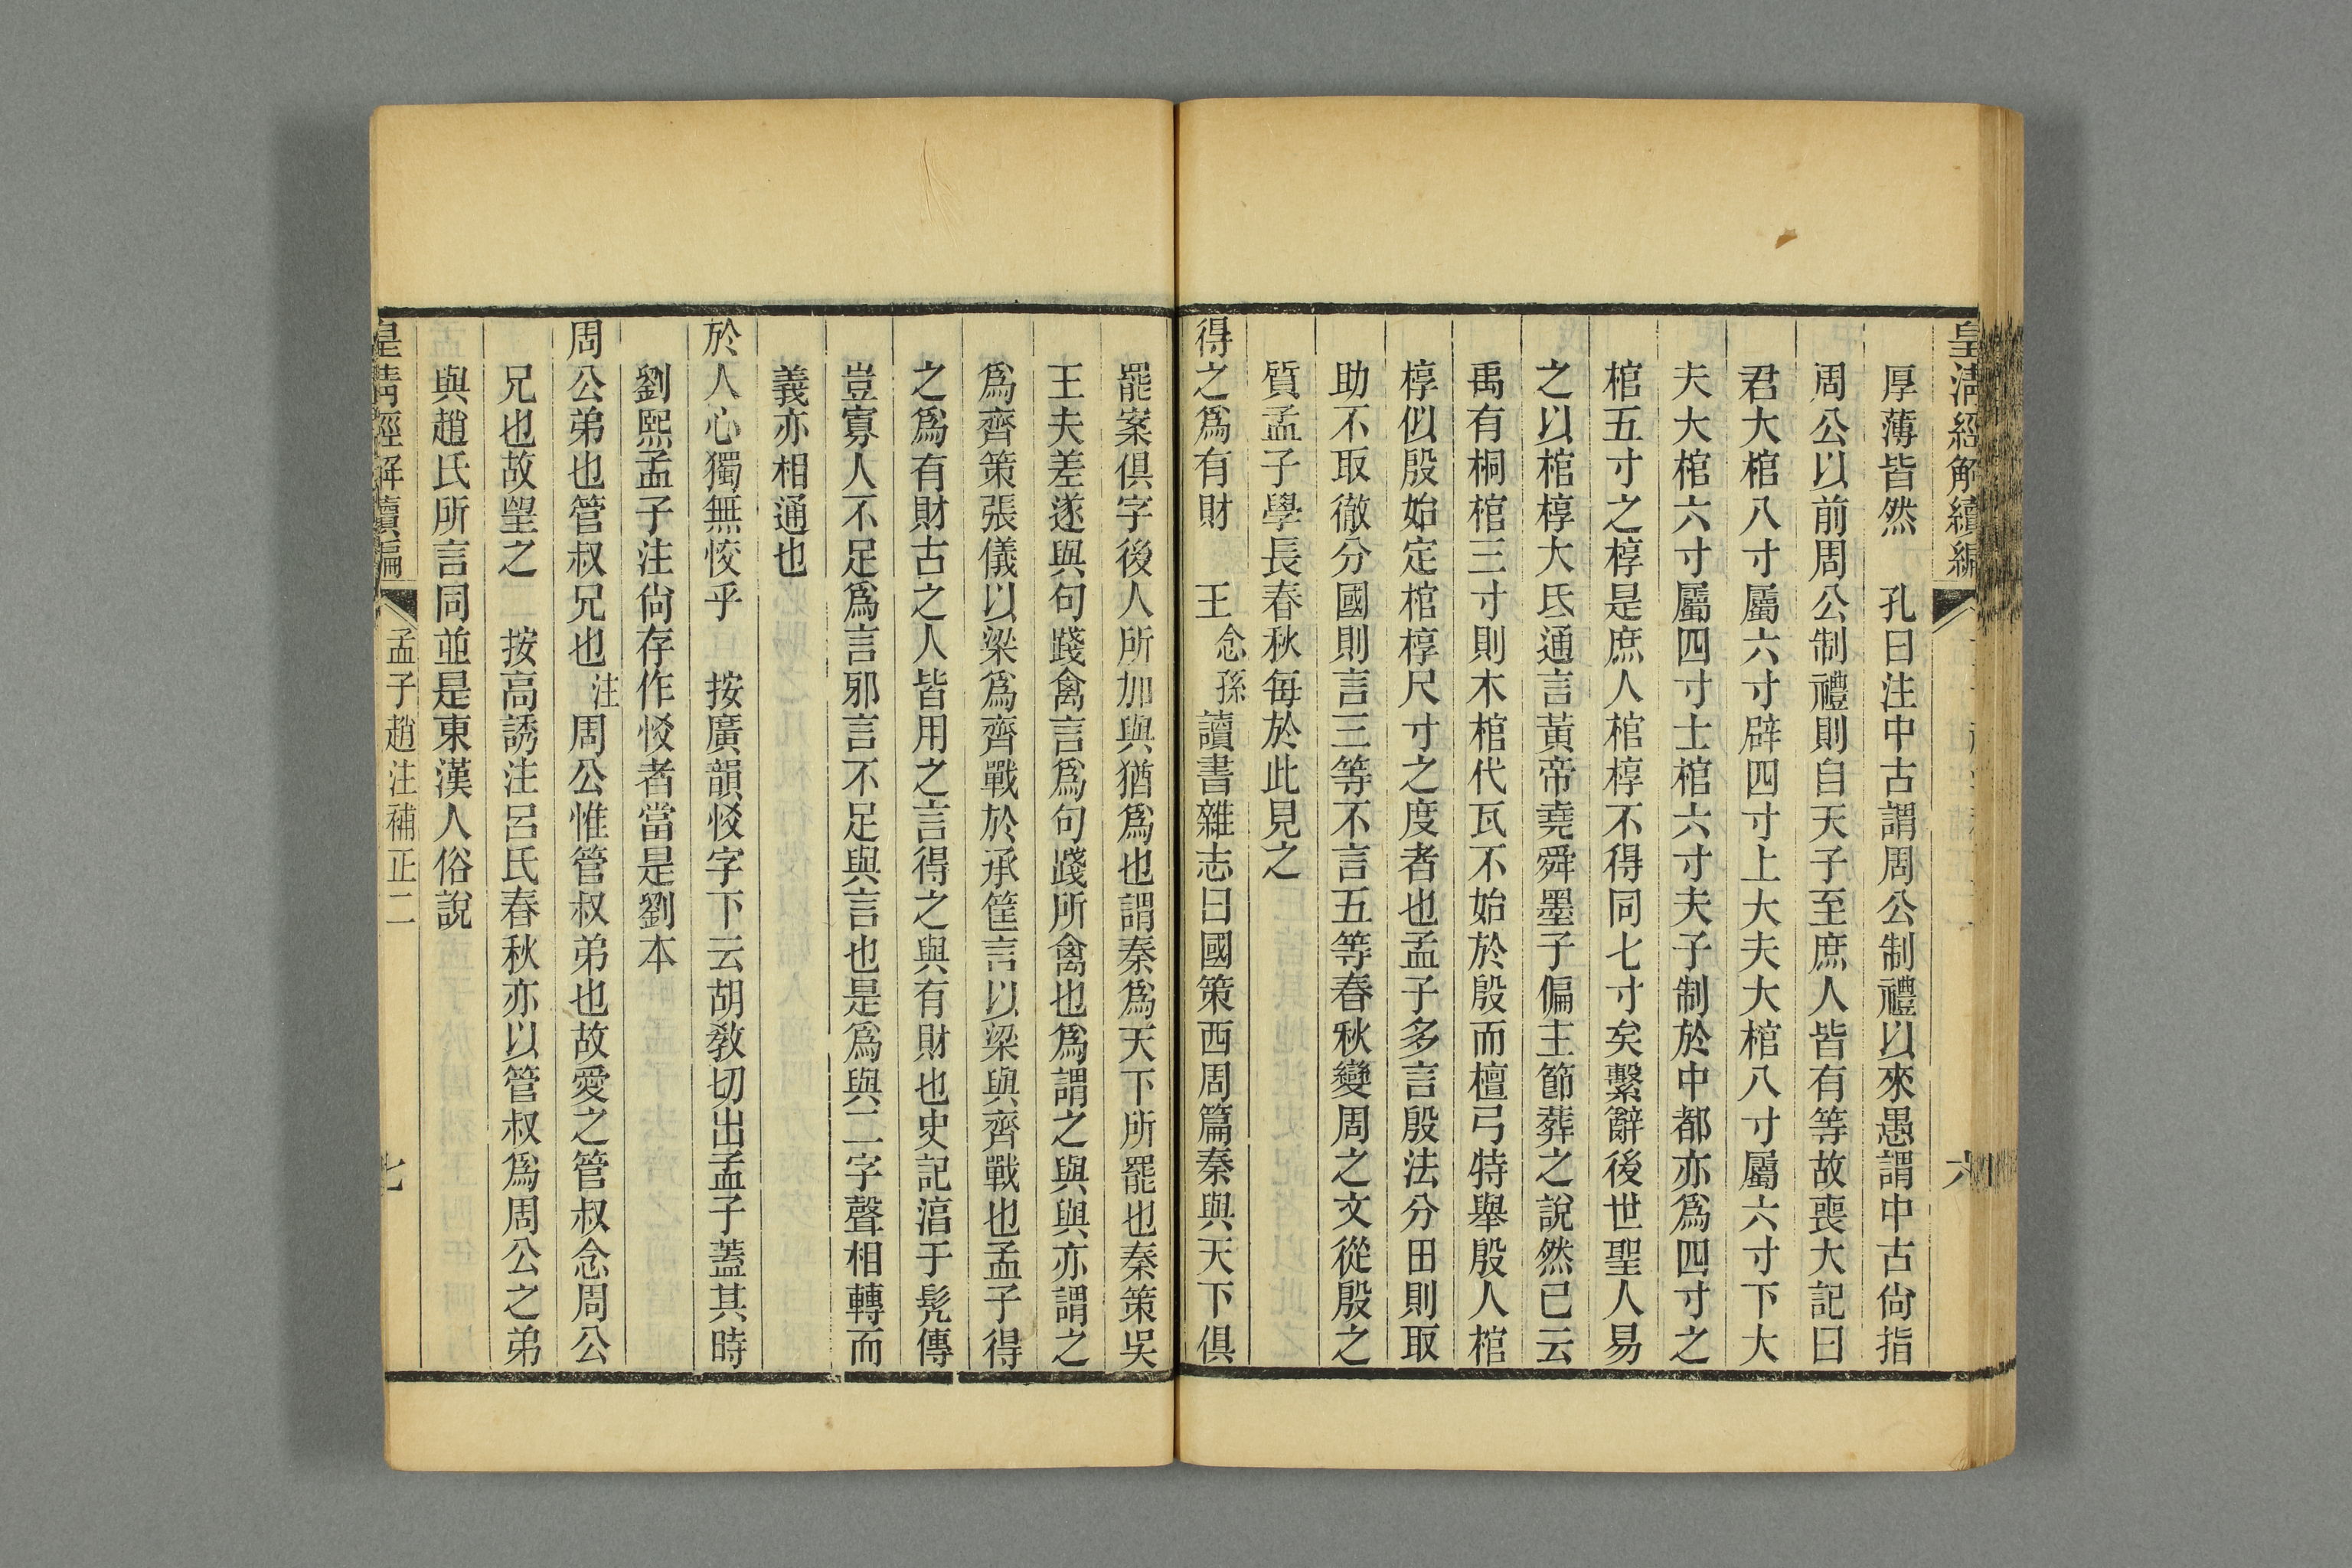 皇淸經解續編
六
厚薄皆然　孔曰注中古謂周公制禮以來愚謂中古尙指
周公以前周公制禮則自天子至庶人皆有等故喪大記曰
君大棺八寸屬六寸辟四寸上大夫大棺八寸屬六寸下大
夫大棺六寸屬四寸士棺六寸夫子制於中都亦爲四寸之
棺五寸之椁是庶人棺椁不得同七寸矣繫辭後世聖人易
之以棺椁大氐通言黃帝堯舜墨子偏主節葬之說然已云
禹有桐棺三寸則木棺代瓦不始於殷而檀弓特舉殷人棺
椁似殷始定棺椁尺寸之度者也孟子多言殷法分田則取
助不取徹分國則言三等不言五等春秋變周之文從殷之
質孟子學長春秋每於此見之
得之爲有財　王念孫讀書雜志曰國策西周篇秦與天下俱
罷案俱字後人所加與猶爲也謂秦爲天下所罷也秦策吳
王夫差遂與句踐禽言爲句踐所禽也爲謂之與與亦謂之
爲齊策張儀以梁爲齊戰於承筐言以梁與齊戰也孟子得
之爲有財古之人皆用之言得之與有財也史記㴆于髡傳
豈寡人不足爲言邪言不足與言也是爲與二字聲相轉而
義亦相通也
於人心獨無恔乎　按廣韻㤥字下云胡敎切出孟子蓋其時
劉熙孟子注尙存作㤥者當是劉本
周公弟也管叔兄也注周公惟管叔弟也故愛之管叔念周公
兄也故朢之　按高誘注呂氏春秋亦以管叔爲周公之弟
與趙氏所言同並是東漢人俗說
皇淸經解續編
孟子趙注補正二
七